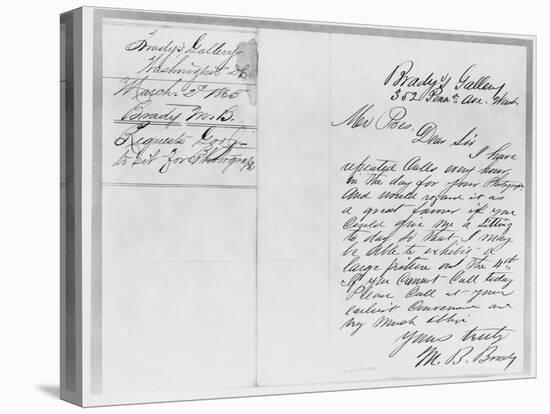 Brady's Gallery
Washington DC
March 2d 1865
Brady M.B.
Requests you
to sit for Photograph
Brady's Gallery
352 Penn. Ave. Wash
Mr Pres.
Dear Sir
I have
repeated Calls every hour
in the day for your Photograph
And would regard it as
a great favour if you
Could give me a sitting
to day so that I may
be able to exhibit a
large picture on the 4th.
If you Cannot Call today
Please Call at your
earliest Convenience and
very Much oblige
Yours truly
M. B. Brady